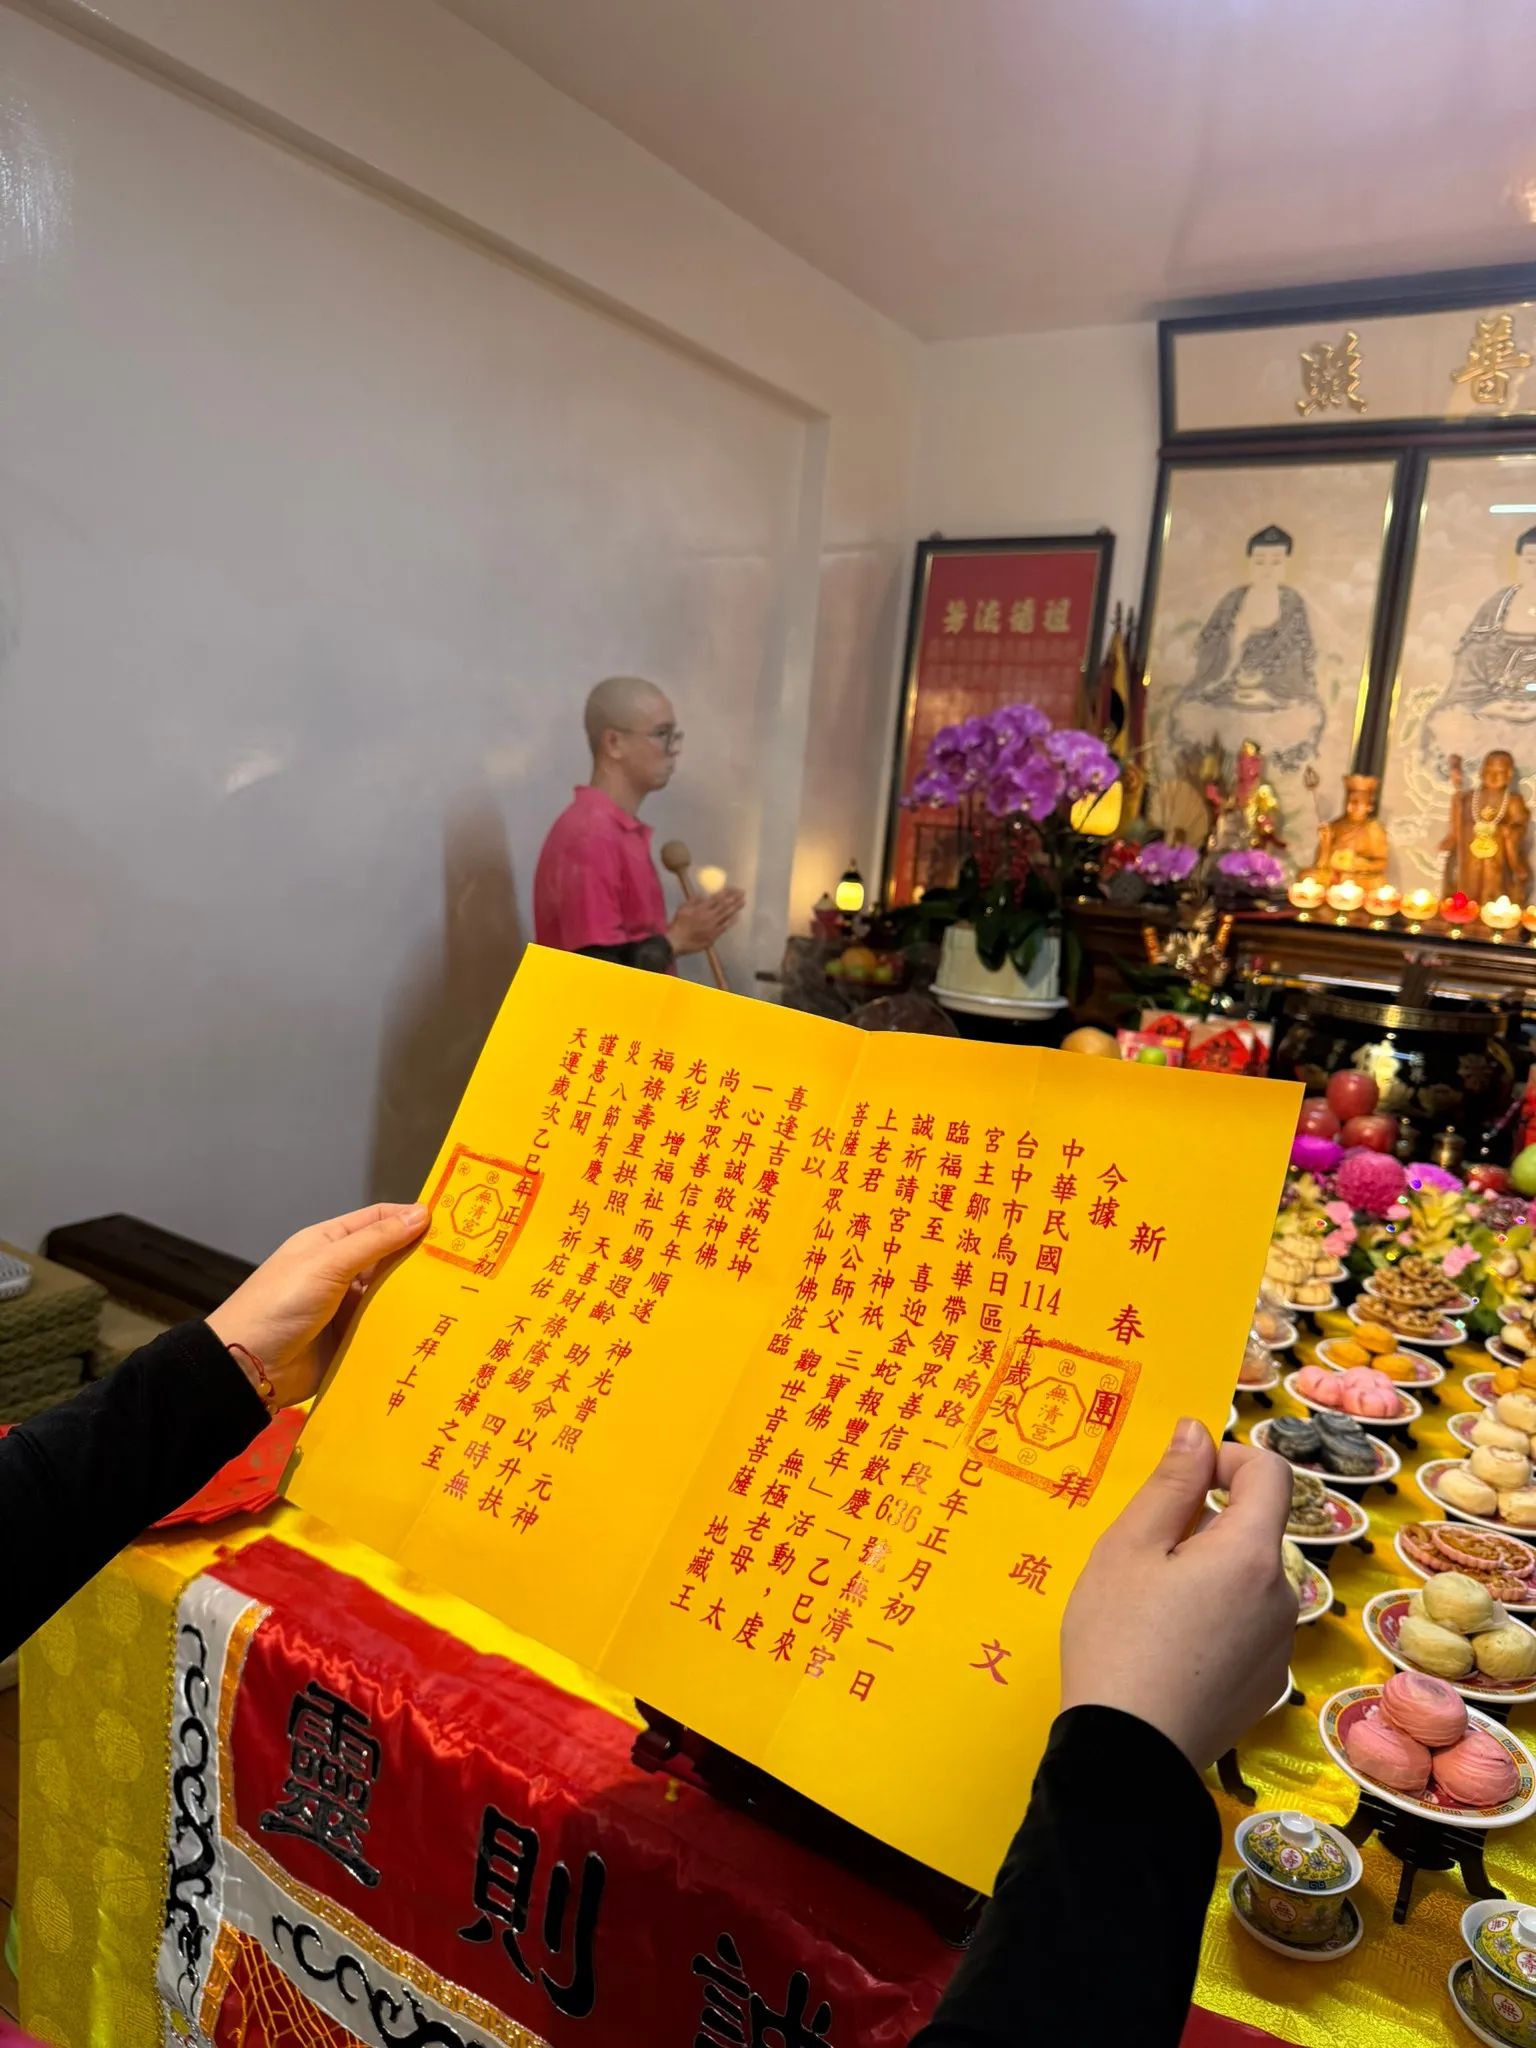 普照
祖德流芳
新春團拜疏文
今據
中華民國114年歲次乙巳年正月初一日
台中市烏日區溪南路一段636號無清宮
宮主鄒淑華帶領眾善信歡慶「乙巳來
臨福運至 喜迎金蛇報豐年」活動，虔
誠祈請宮中神祇 三寶佛 無極老母 太
上老君 濟公師父 觀世音菩薩 地藏王
菩薩及眾仙神佛蒞臨
伏以
喜逢吉慶滿乾坤
一心丹誠敬神佛
尚求眾善信年年順遂 神光普照 元神
光彩 增福祉而錫遐齡 助本命以升扶
福祿壽星拱照 天喜財祿蔭錫 四時無
災 八節有慶 均祈庇佑 不勝懇禱之至
謹意上聞
天運歲次乙巳年正月初一 百拜上申
無清宮
無清宮
誠則靈